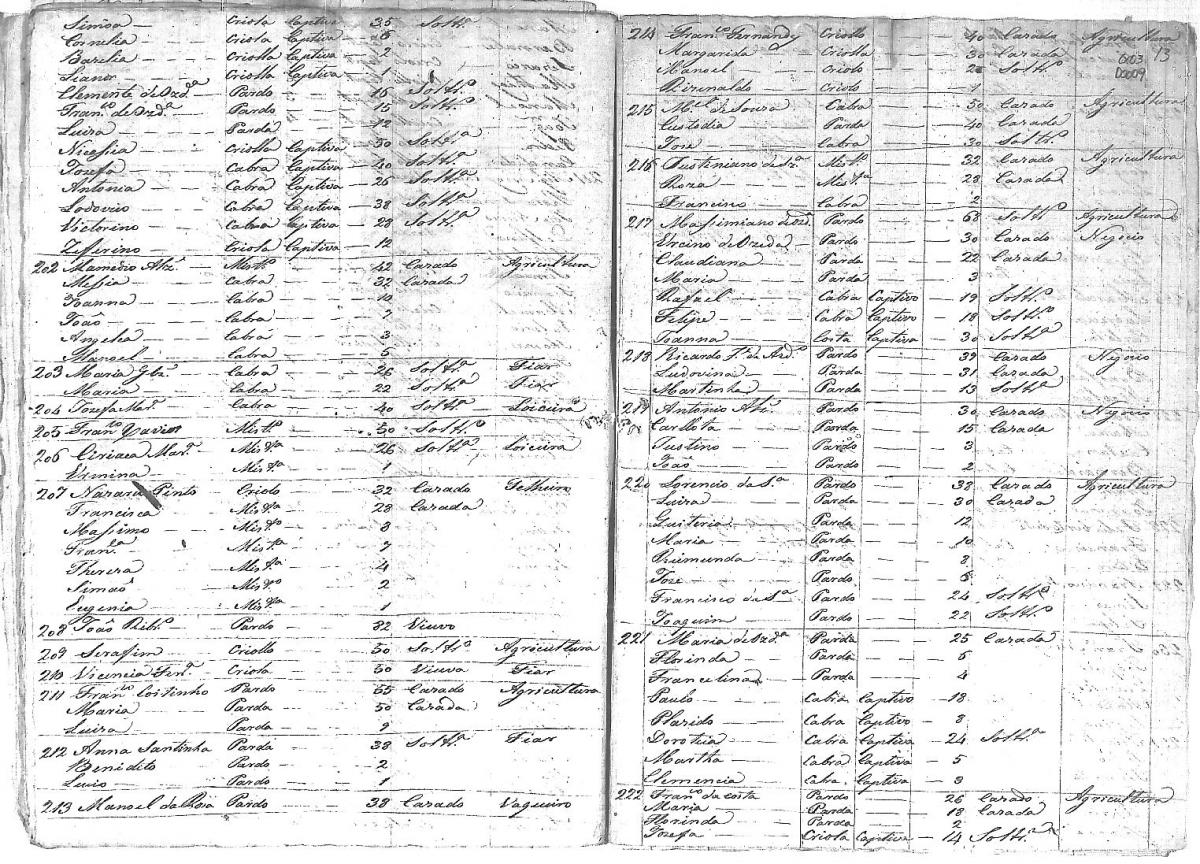 Simôa — Criola Captiva — 35 Soltrª
Cornelia — Criola Captiva — 6
Bazilia — Criolla Captiva — 2
Lianor — Criolla Captiva — 1
Clemente de Ozdª — Pardo — 16 Soltrº
Franco de Ozdª — Pardo — 15 Soltrº
Luiza — Parda — 12
Nicacia — Criolla Captiva — 50 Soltrª
Jozefa — Cabra Captiva — 40 Soltrª
Antonia — Cabra Captiva — 26 Soltrª
Lodovico — Cabra Captiva — 38 Soltrº
Victorino — Cabra Captiva — 28 Soltrº
Zefferino — Criolo Captivo — 12
202 Mamedio Alzˢ — Mistº — 42 Cazado Agricultura
Messia — Cabra — 32 Cazada
Joanna — Cabra — 10
João — Cabra — 7
Angelica — Cabra — 3
Manoel — Cabra — 5
203 Maria — Cabra — 26 Soltrª Fiar
Maria — Cabra — 22 Soltrª Fiar
204 Jozefa Marª — Cabra — 40 Soltrª — Loiceira
205 Franco Xavier Mistº — 50 Soltrº
206 Ciriaca Marª — Mistª — 26 Soltrª — Loiceira
Exmina — Mistª — 1
207 Nazario Pinto Criolo — 32 Cazado Telheiro
Francisca — Mistª — 28 Cazada
Massimo — Mistº — 8
Franca — Mistª — 7
Thereza — Mistª — 4
Simaô — Mistº — 2
Eugenia — Mistª — 1
208 João Ribrº — Pardo — 32 Viuvo
209 Serafim — Criollo — 50 Soltrº Agricultura
210 Vicencia Ferª — Criola — 50 Viuva Fiar
211 Franco Coitinho Pardo — 55 Cazado Agricultura
Maria — Parda — 50 Cazada
Luiza — Parda — 9
212 Anna Santinha Parda — 38 Soltrª Fiar
Benidito — Pardo — 2
Lucio — Pardo — 1
213 Manoel da Roxa Pardo — 38 Cazado Vaqueiro
13
0103
D0009
214 Franco Fernandes Criollo — 40 Cazado Agricultura
Margarida — Criolla — 30 Cazada
Manoel — Criolo — 2 Soltrº
Criolo — 1
215 Mel de Souza Cabra — 50 Cazado Agricultura
Custodia — Parda — 40 Cazada
Joze — Cabra — 30 Soltrº
216 Justiniano de Szª Mistº — 32 Cazado Agricultura
Roza — Mistª — 28 Cazada
Francino — Cabra — 2
217 Massimiano de Ozdª Pardo — 68 Soltrº Agricultura
Ercino de Ozeda Pardo — 30 Cazado Negocio
Claudiana — Parda — 22 Cazada
Maria — Parda — 3
Rafael — Cabra Captivo — 19 Soltrº
Felipe — Cabra Captivo — 18 Soltrº
Joanna — Costa Captiva — 30 Soltrª
218 Ricardo de Azdº Pardo — 39 Cazado Negocio
Ludovina — Parda — 31 Cazada
Martinha — Parda — 13 Soltrª
219 Antonio Alzˢ Pardo — 30 Cazado Negocio
Carllota — Parda — 15 Cazada
Justino — Pardo — 3
João — Pardo — 2
220 Lorencio da Sª Pardo — 38 Cazado Agricultura
Luiza — Parda — 30 Cazada
Guiteria — Parda — 12
Maria — Parda — 10
Reimunda — Parda — 8
Joze — Pardo — 5
Francisco da Sª Pardo — 24 Soltrº
Joaquim — Pardo — 22 Soltrº
221 Maria de Ozdª Parda — 25 Cazada
Florinda — Parda — 6
Francelina — Parda — 4
Paulo — Cabra Captivo — 18
Plazido — Cabra Captivo — 8
Dorothia — Cabra Captiva — 24 Soltrª
Martha — Cabra Captiva — 5
Clemencia — Cabra Captiva — 3
222 Franco da Costa Pardo — 26 Cazado Agricultura
Maria — Parda — 18 Cazada
Florinda — Parda — 2
Jozefa — Criola Captiva — 14 Soltrª